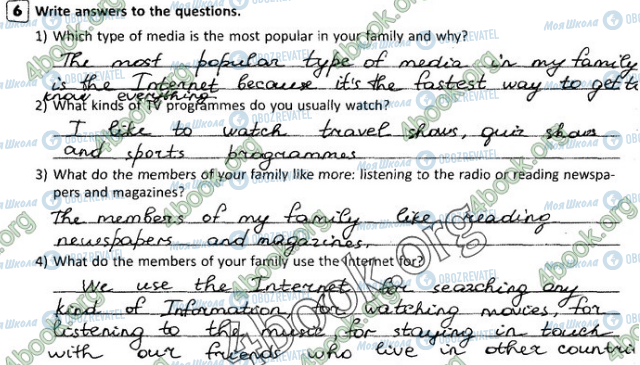 6 Write answers to the questions.
1) Which type of media is the most popular in your family and why?
The most popular type of media in my family
is the Internet because it's the fastest way to get to
know everything
2) What kinds of TV programmes do you usually watch?
I like to watch travel shows, quiz shows
and sports programmes
3) What do the members of your family like more: listening to the radio or reading newspa-
pers and magazines?
The members of my family like reading
newspapers and magazines.
4) What do the members of your family use the Internet for?
We use the Internet for searching any
kind of Information for watching movies, for
listening to the music for staying in touch
with our friends who live in other countri
4book.org
Моя Школа
OBOZREVATEL